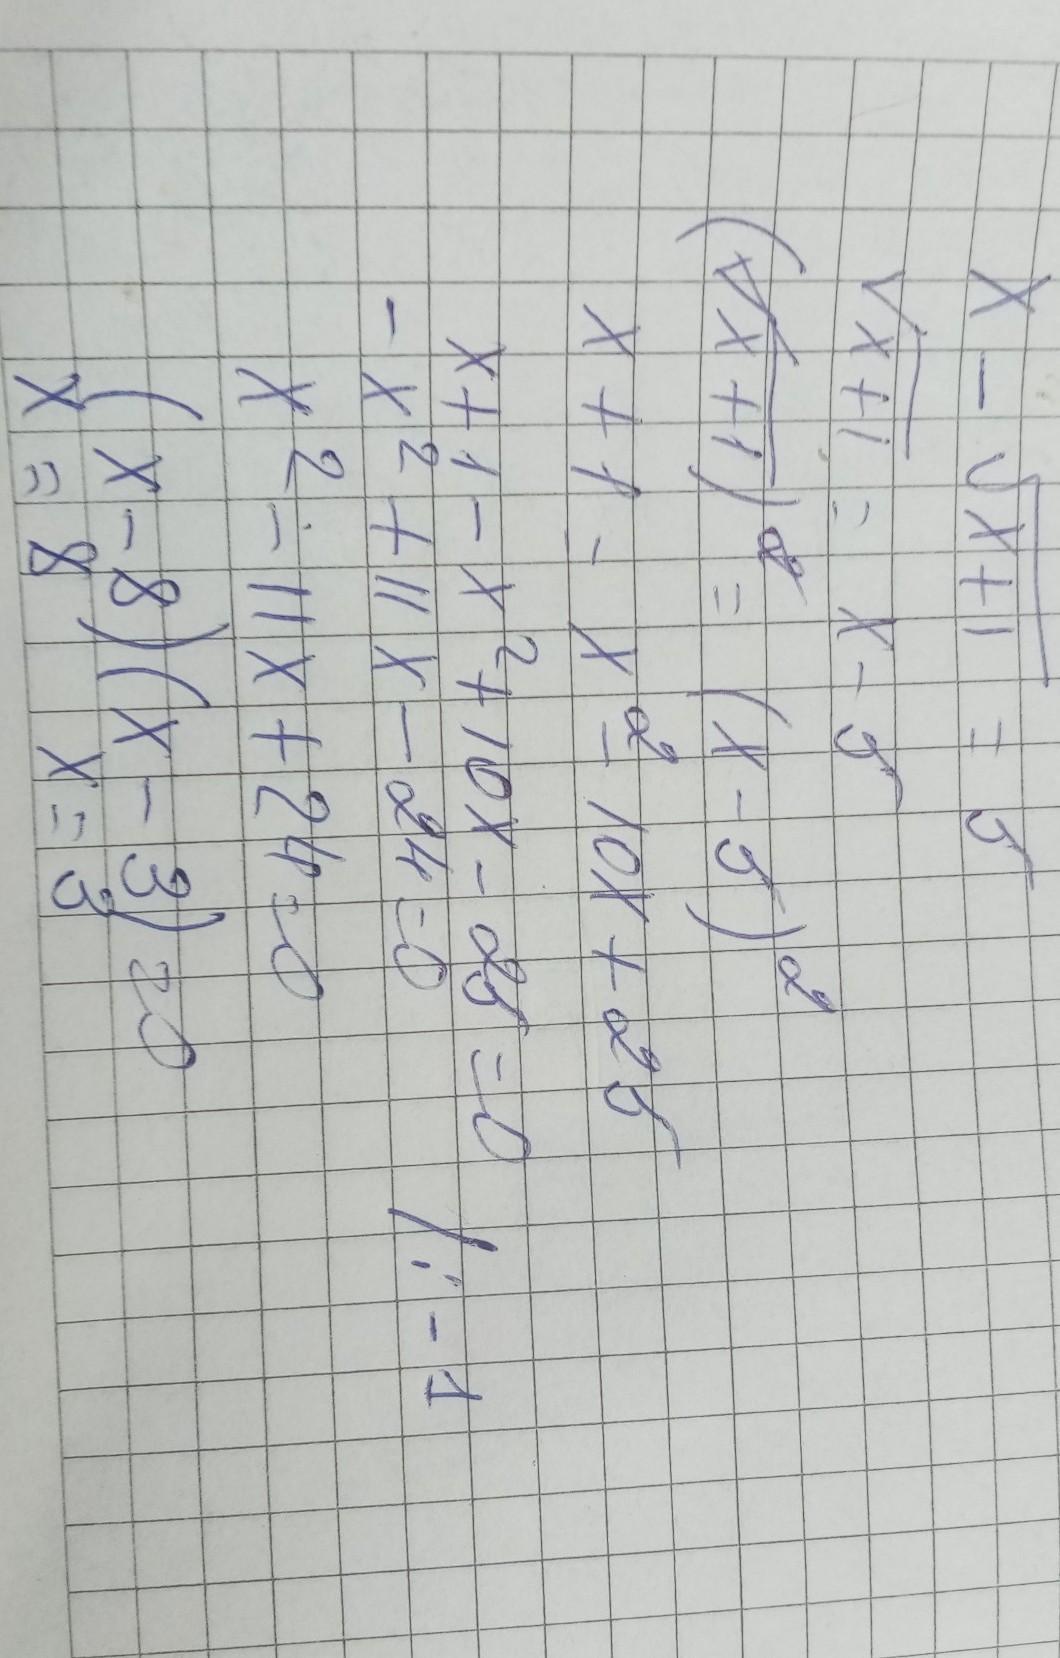 x - √x+1 = 5
√x+1 = x - 5
(√x+1)² = (x - 5)²
x + 1 = x² - 10x + 25
x + 1 - x² + 10x - 25 = 0
- x² + 11x - 24 = 0 /: -1
x² - 11x + 24 = 0
(x - 8)(x - 3) = 0
x = 8 x = 3